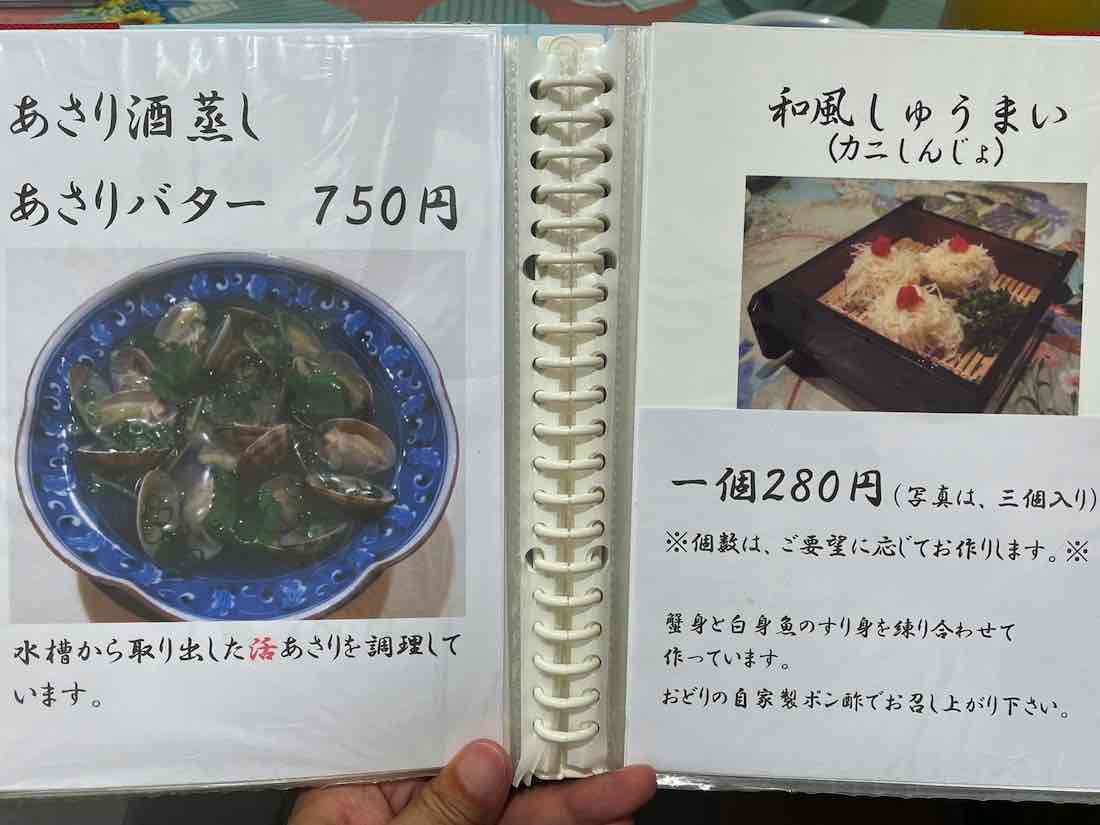 あさり酒蒸し
あさりバター 750円
水槽から取り出した活あさりを調理して
います。
和風しゅうまい
(カニしんじょ)
一個280円(写真は、三個入り)
※個数は、ご要望に応じてお作りします。※
蟹身と白身魚のすり身を練り合わせて
作っています。
おどりの自家製ポン酢でお召し上がり下さい。